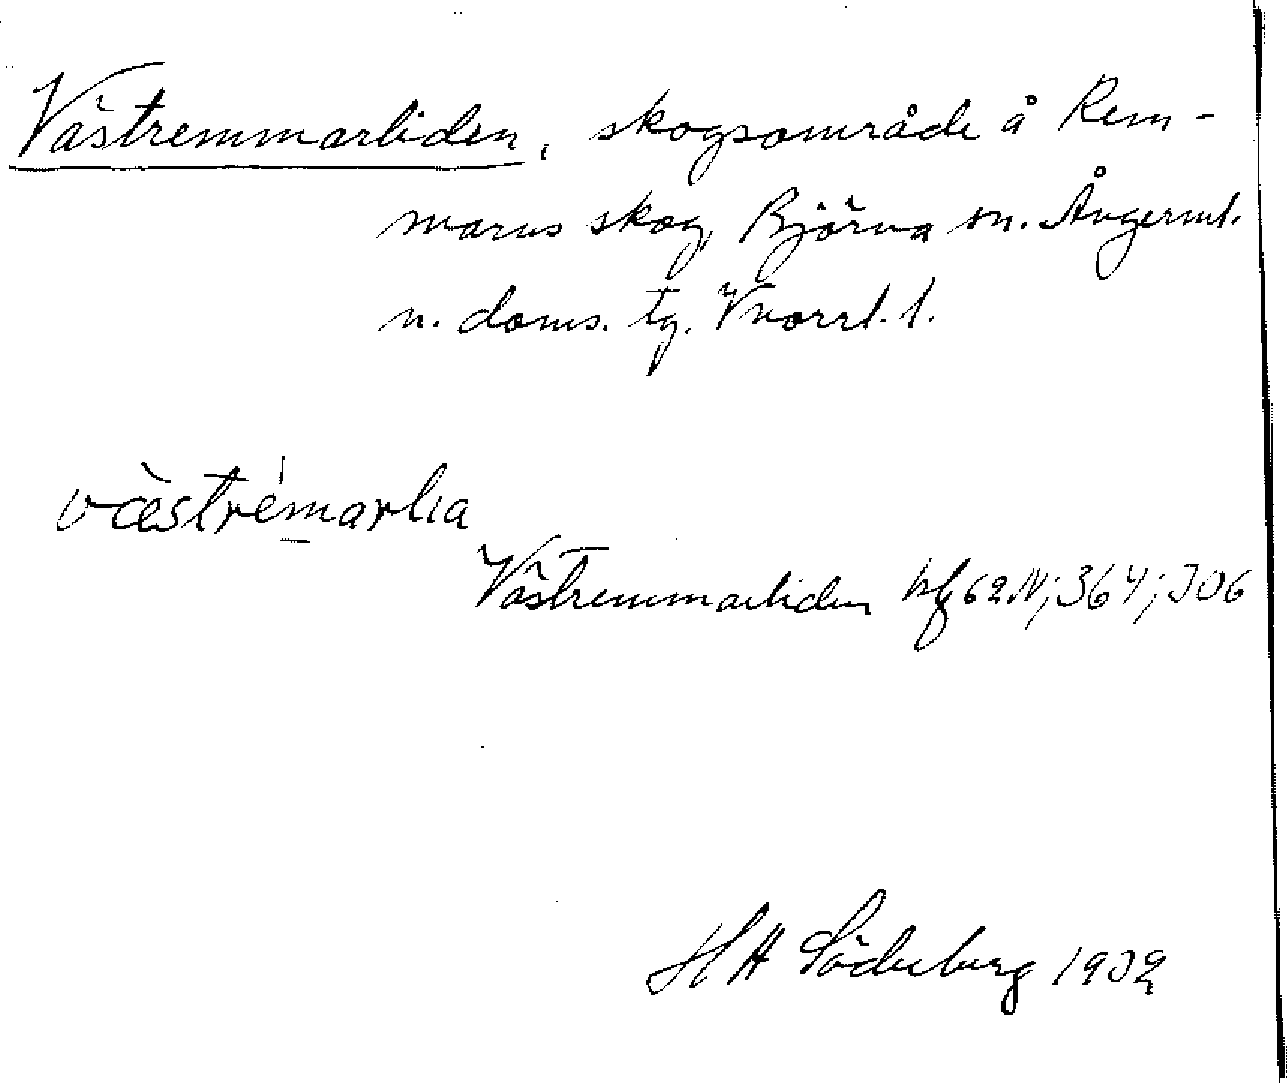 Västremmarliden, skogsområde å Rem-
marns skog, Björna sn. Ångerml.
n. doms. tg. Vnorrl. l.
væstrémarlia
Västremmarliden
H H Söderberg 1932